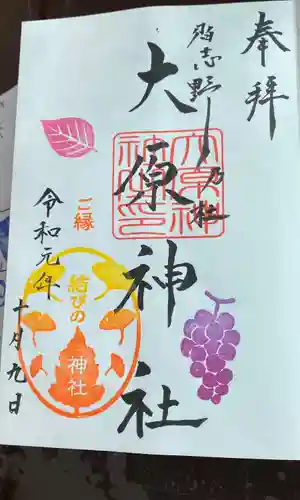 奉拝
習志野乃杜
大原神社
大原神社印
ご縁
結びの
神社
令和元年
十月九日